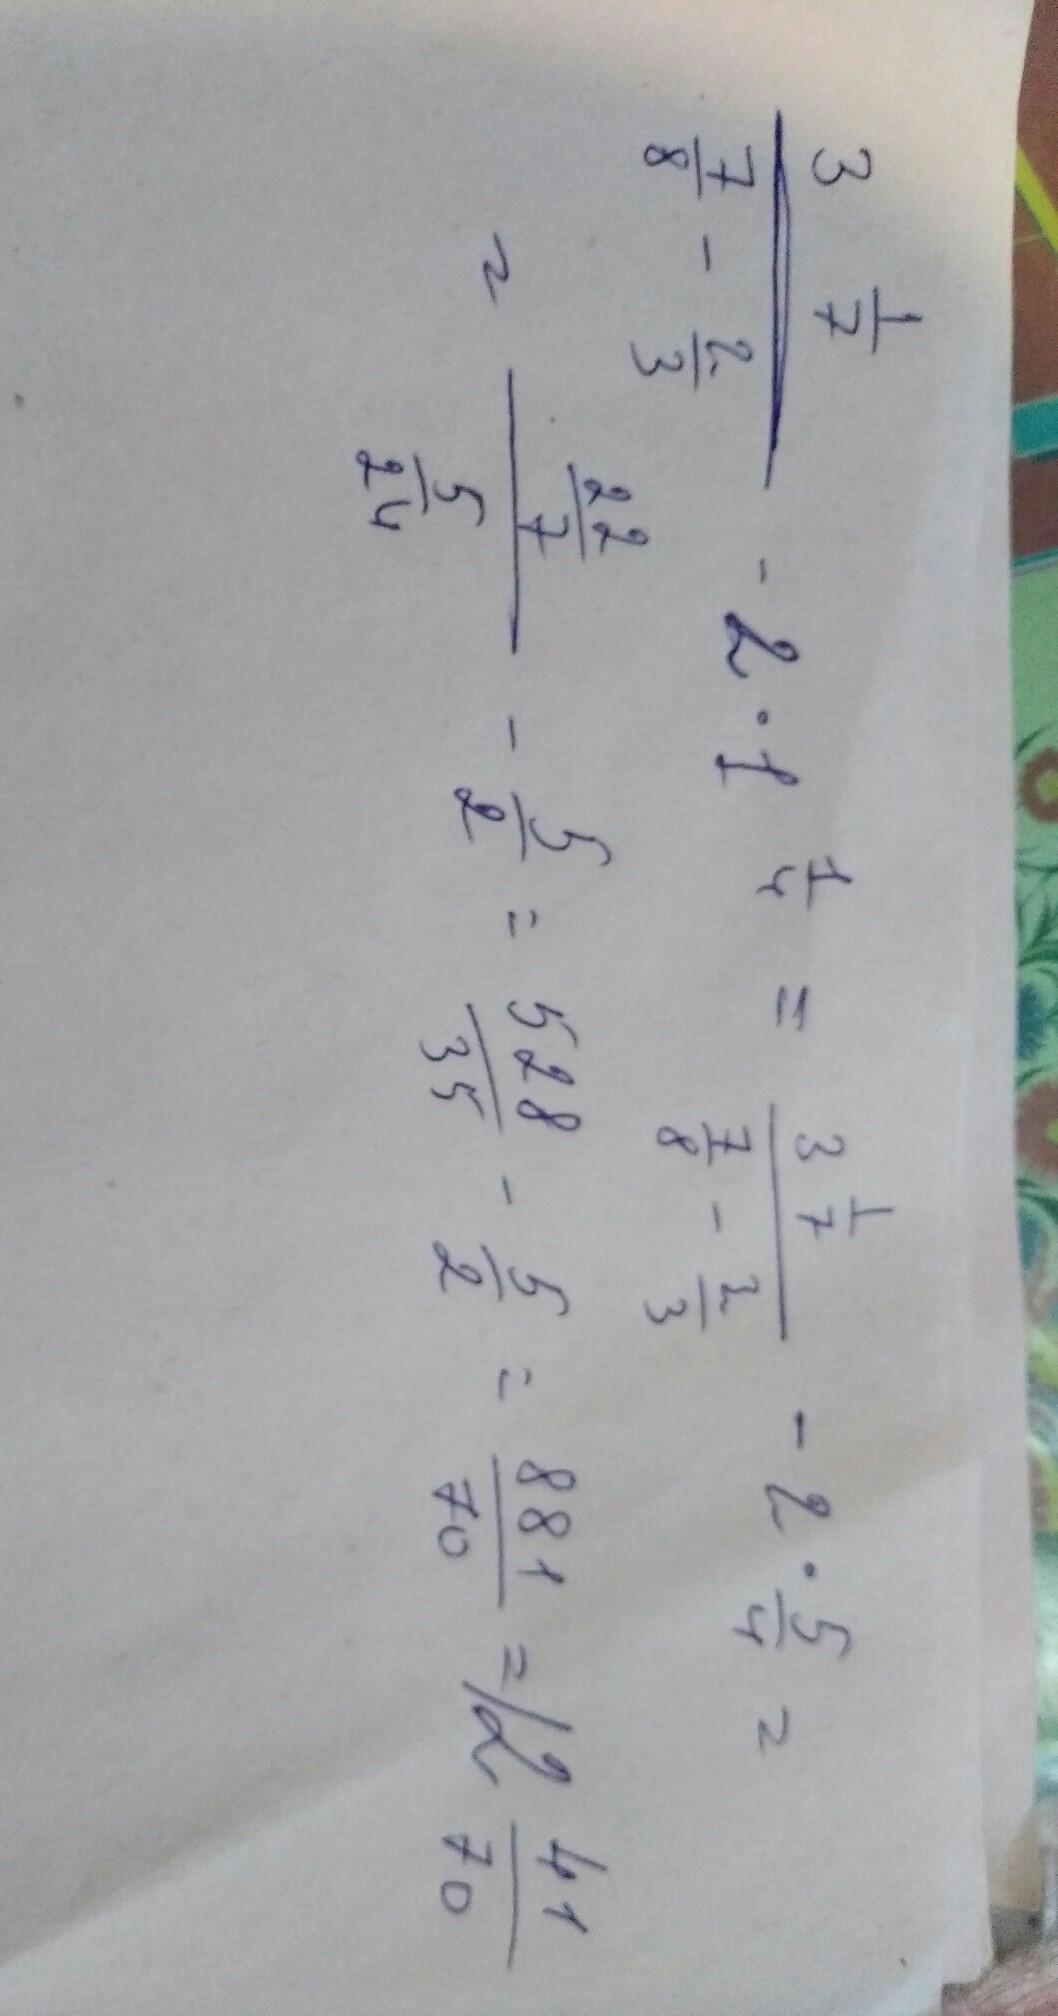 3 1/7 / (7/8 - 2/3) - 2 · 1 1/4 = 3 1/7 / (7/8 - 2/3) - 2 · 5/4 =
= 22/7 / 5/24 - 5/2 = 528/35 - 5/2 = 881/70 = 12 41/70